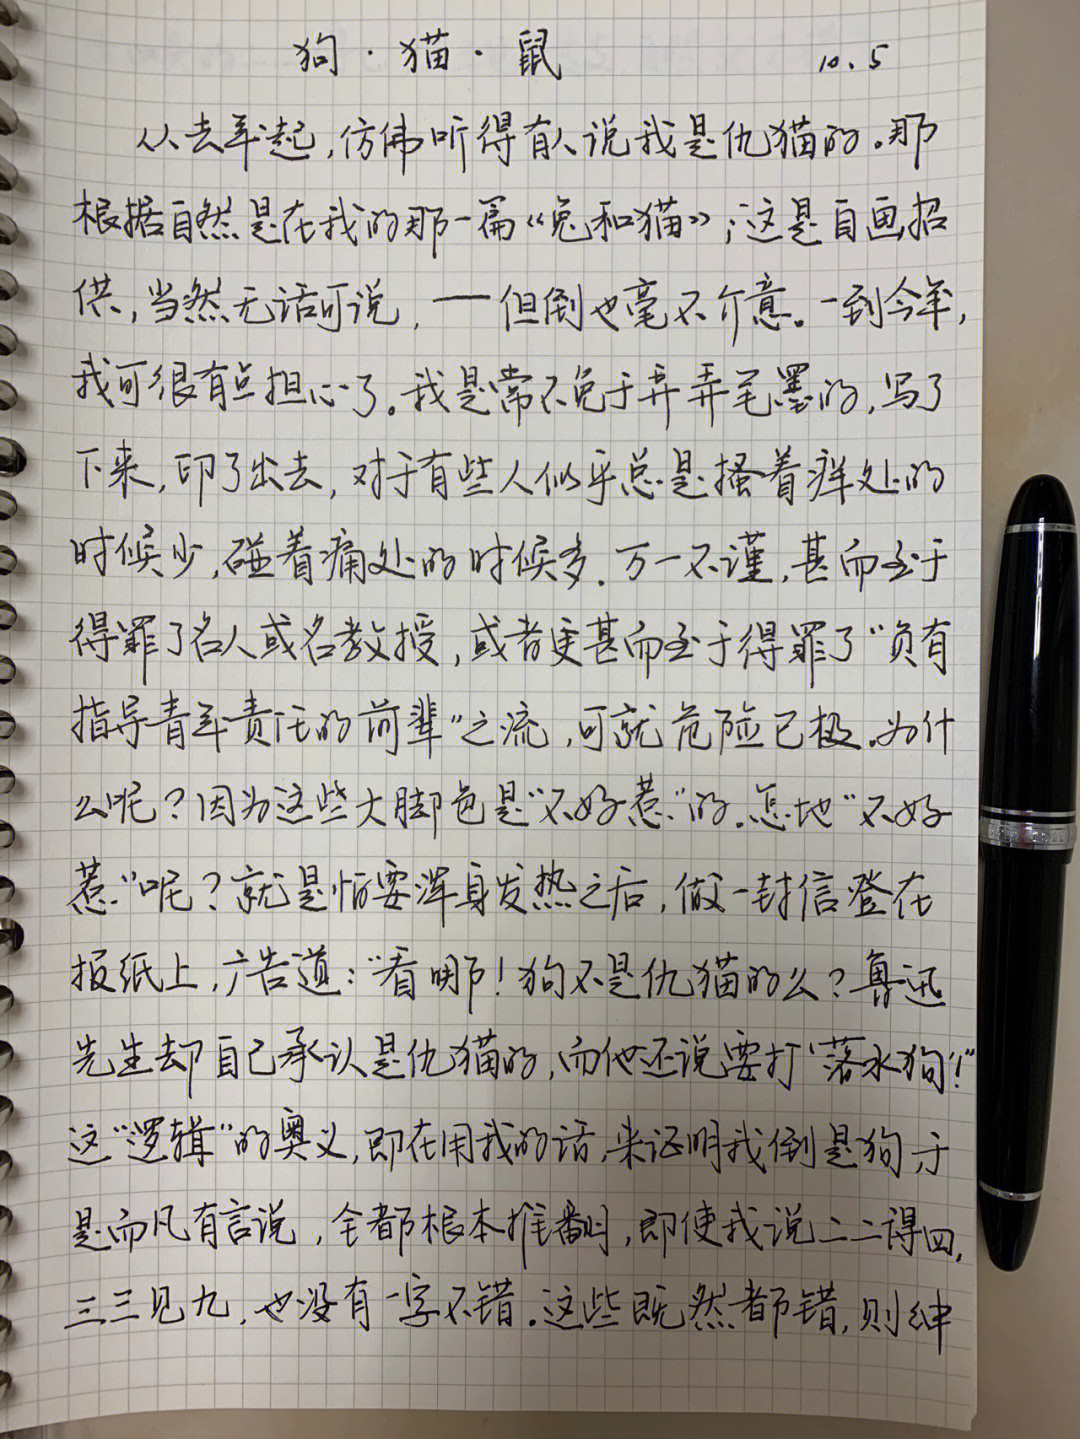 狗·猫·鼠 10.5
从去年起,仿佛听得有人说我是仇猫的。那
根据自然是在我的那一篇《兔和猫》;这是自画招
供,当然无话可说,——但倒也毫不介意。一到今年,
我可很有点担心了。我是常不免于弄弄笔墨的,写了
下来,印了出去,对于有些人似乎总是搔着痒处的
时候少,碰着痛处的时候多。万一不谨,甚而至于
得罪了名人或名教授,或者更甚而至于得罪了“负有
指导青年责任的前辈”之流,可就危险已极。为什
么呢?因为这些大脚色是“不好惹”的。怎地“不好
惹”呢?就是怕要浑身发热之后,做一封信登在
报纸上,广告道:“看哪!狗不是仇猫的么?鲁迅
先生却自己承认是仇猫的,而他还说要打‘落水狗’!”
这“逻辑”的奥义,即在用我的话,来证明我倒是狗,于
是而凡有言说,全都根本推翻,即使我说二二得四,
三三见九,也没有一字不错。这些既然都错,则绅